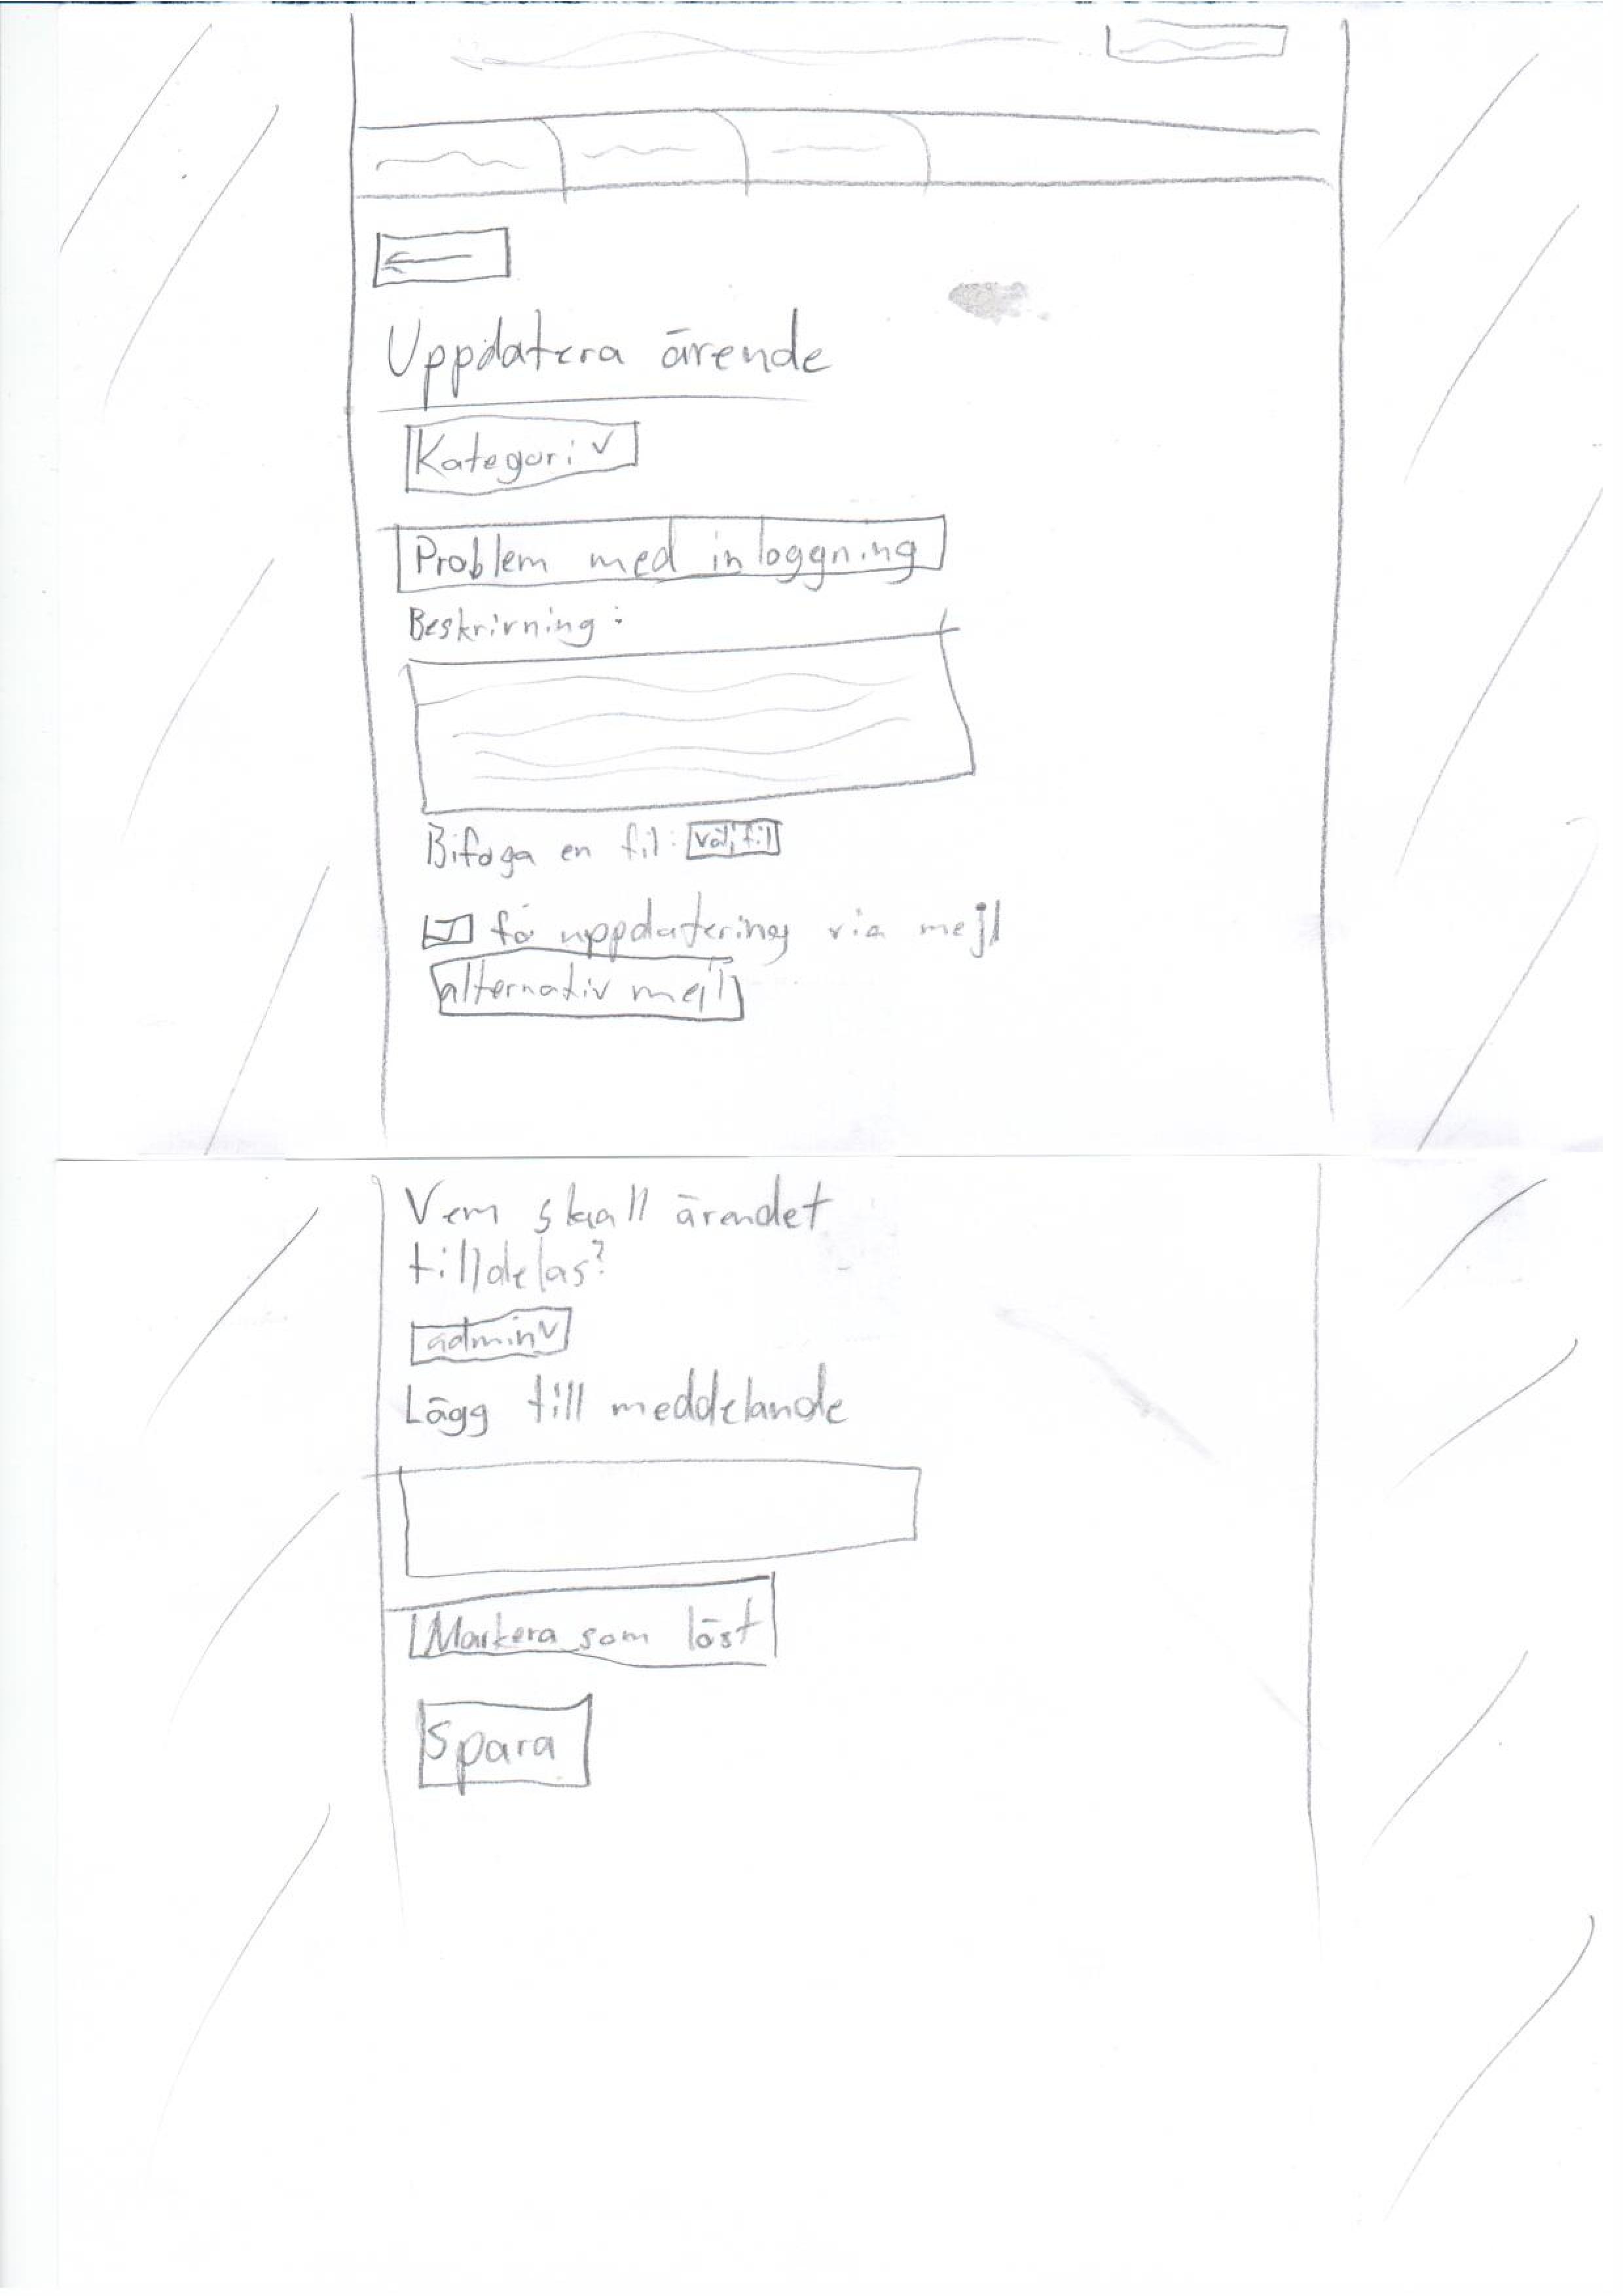 Uppdatera ärende
Kategori
Problem med inloggning
Beskrivning:
Bifoga en fil: välj fil
få uppdatering via mejl
alternativ mejl
Vem skall ärendet
tilldelas?
admin
Lägg till meddelande
Markera som löst
Spara